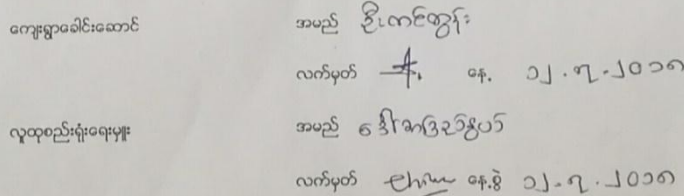 ကျေးရွာခေါင်းဆောင် အမည် ဦးတင်ထွန်း
လက်မှတ် နေ့ ၁၂.၇.၂၀၁၈
လူထုစည်းရုံးရေးမှူး အမည် ဒေါ်
လက်မှတ် နေ့စွဲ ၁၂.၇.၂၀၁၈